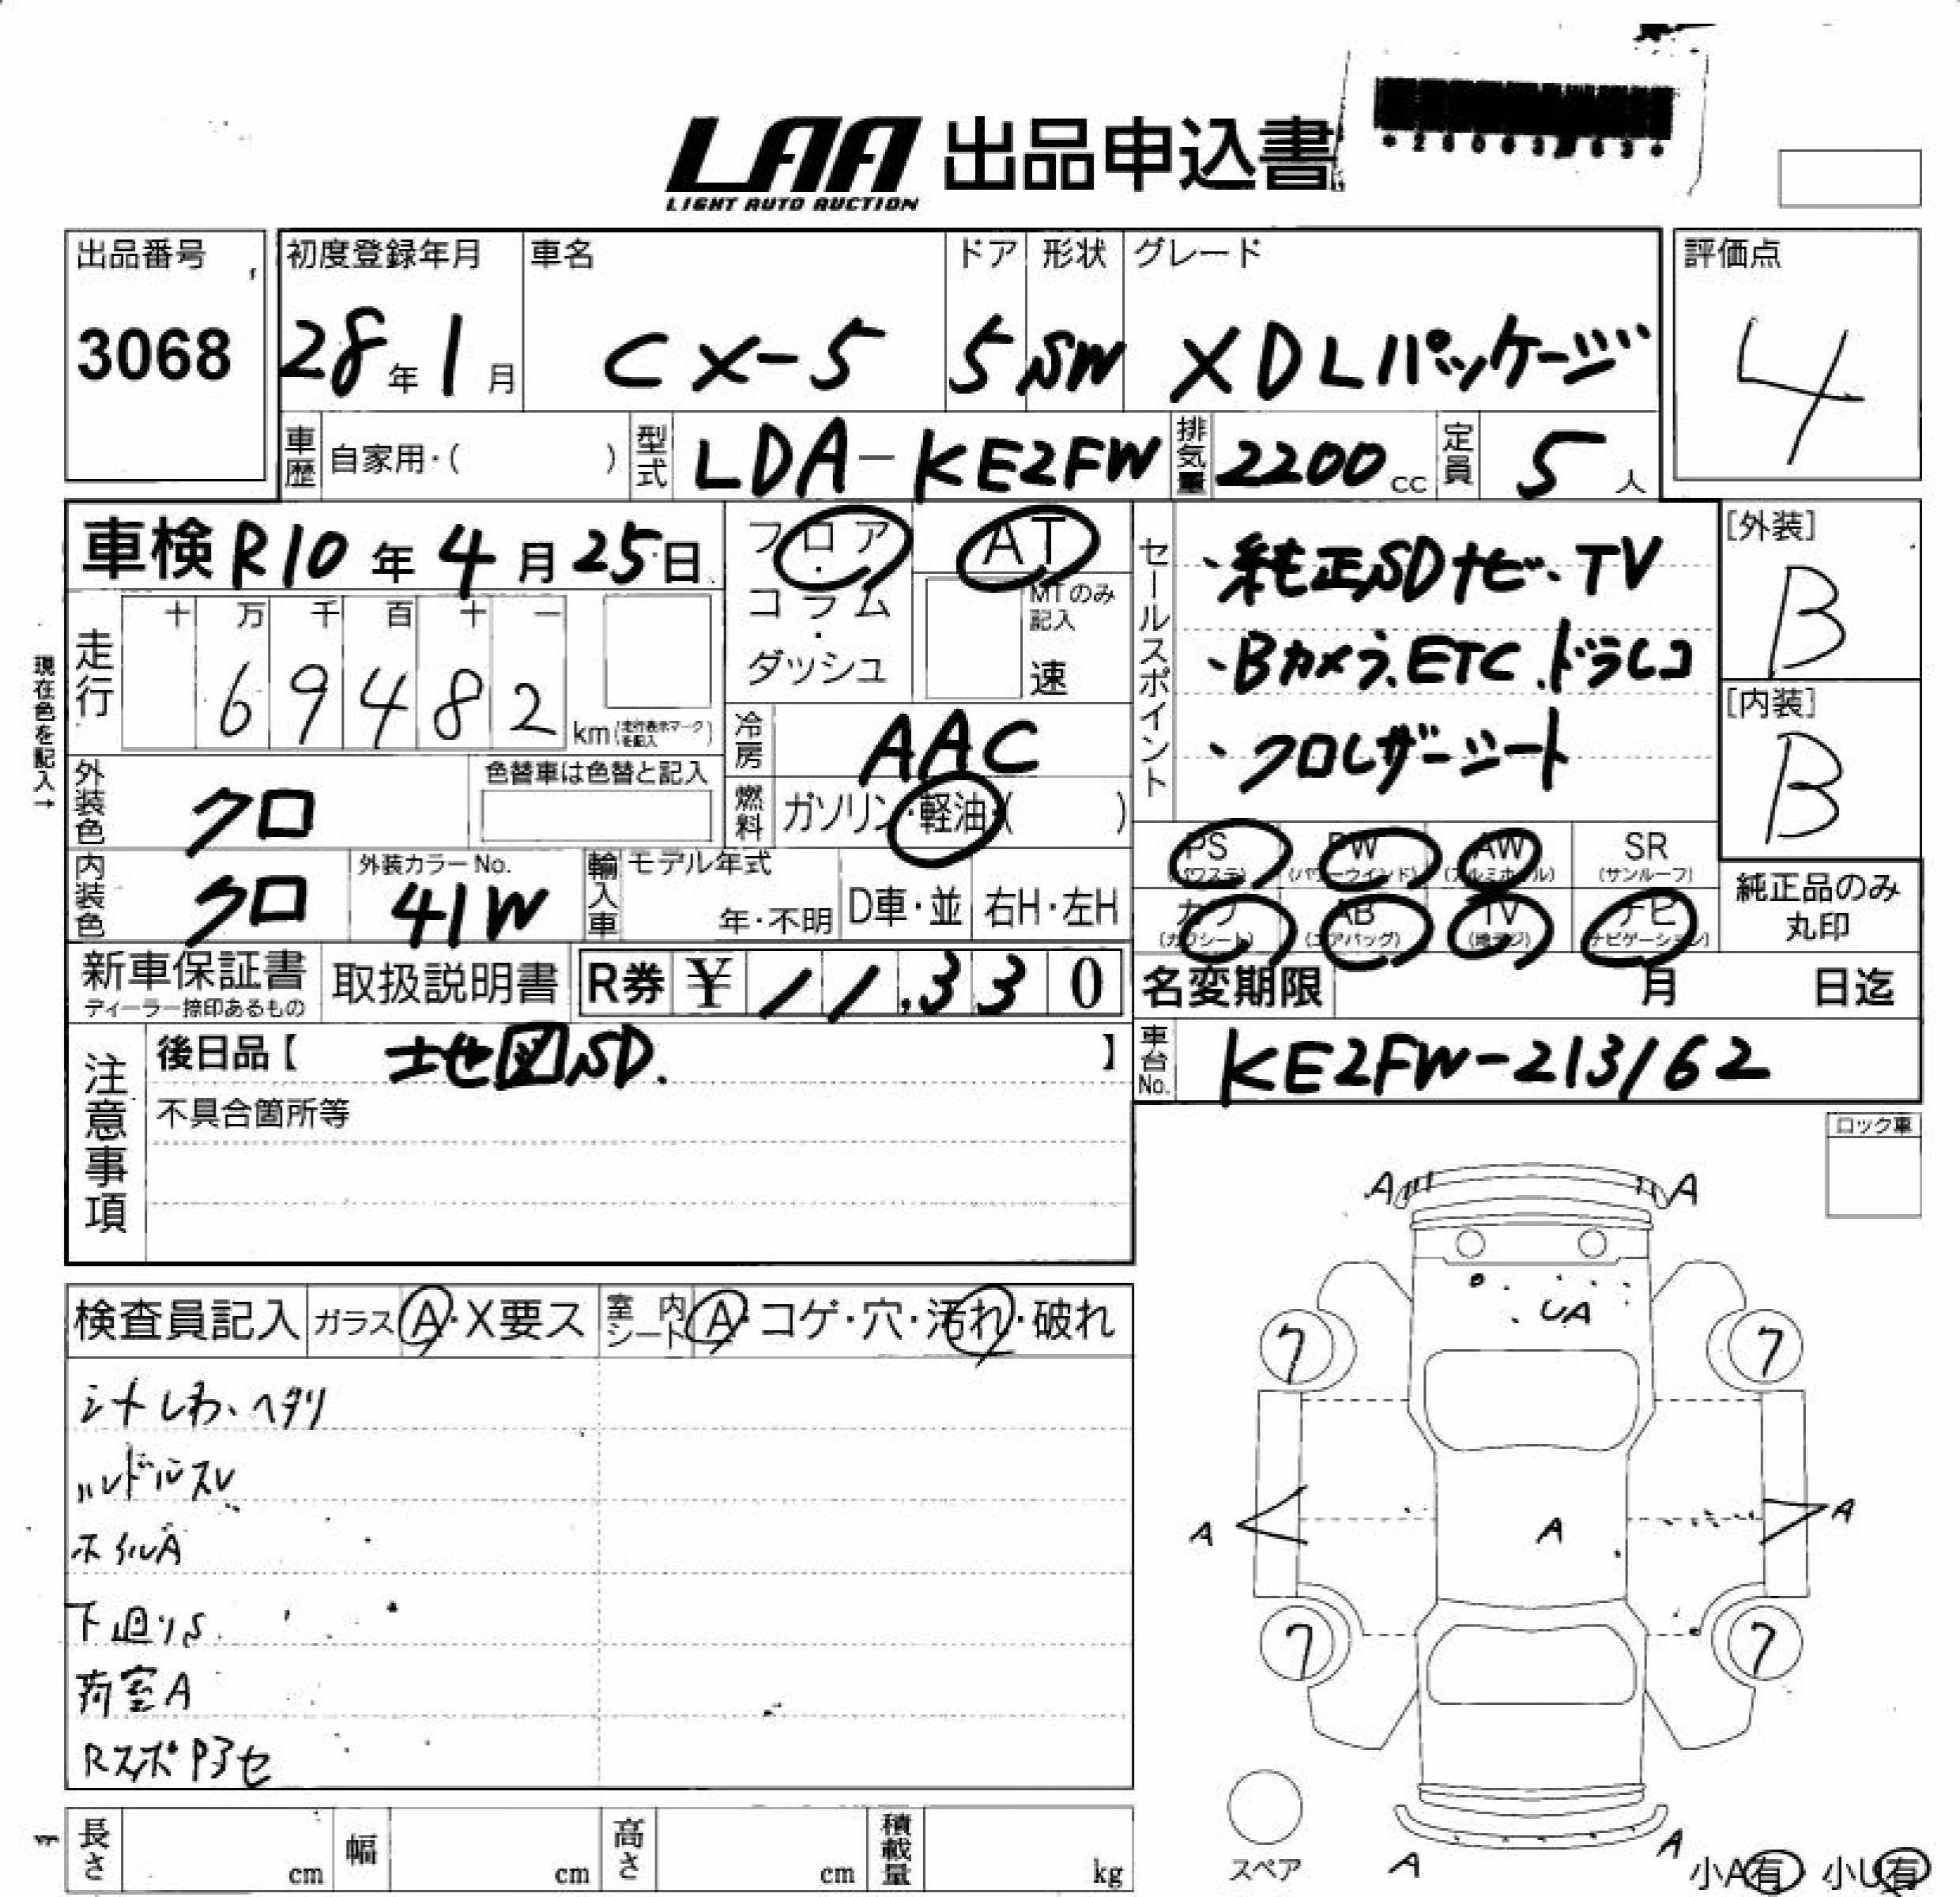 LAA 出品申込書
LIGHT AUTO AUCTION
出品番号
3068
初度登録年月
28年1月
車名
CX-5
ドア
5
形状
SW
グレード
XDLパッケージ
評価点
4
車歴 自家用・( )
型式 LDA-KE2FW
排気量 2200cc
定員 5人
車検 R10年4月25日
フロア・コラム・ダッシュ
AT
MTのみ記入
速
セールスポイント
・純正SDナビ、TV
・Bカメラ、ETC、ドラレコ
・クロレザーシート
[外装]
B
[内装]
B
現在色を記入→
走行
十 万 千 百 十 一
6 9 4 8 2
km(走行表示マークを記入)
冷房 AAC
燃料 ガソリン・軽油・( )
外装色 クロ
色替車は色替と記入
内装色 クロ
外装カラーNo.
41W
輸入車
モデル年式
年・不明
D車・並
右H・左H
PS(パワステ) PW(パワーウインド) AW(アルミホイール) SR(サンルーフ)
カワ(カワシート) AB(エアバッグ) TV(地デジ) ナビ(ナビゲーション)
純正品のみ丸印
新車保証書
ディーラー捺印あるもの
取扱説明書
R券 ¥ 11,330
名変期限 月 日迄
注意事項
後日品【 地図SD. 】
不具合箇所等
車台No. KE2FW-213162
ロック車
検査員記入
ガラス A・X要ス
室内シート A・コゲ・穴・汚れ・破れ
シートしわ、ヘタリ
ハンドルスレ
ホイルA
下廻りS
荷室A
A A
UA
7 7
A A A
7 7
A A
スペア
小A有 小U有
長さ cm
幅 cm
高さ cm
積載量 kg